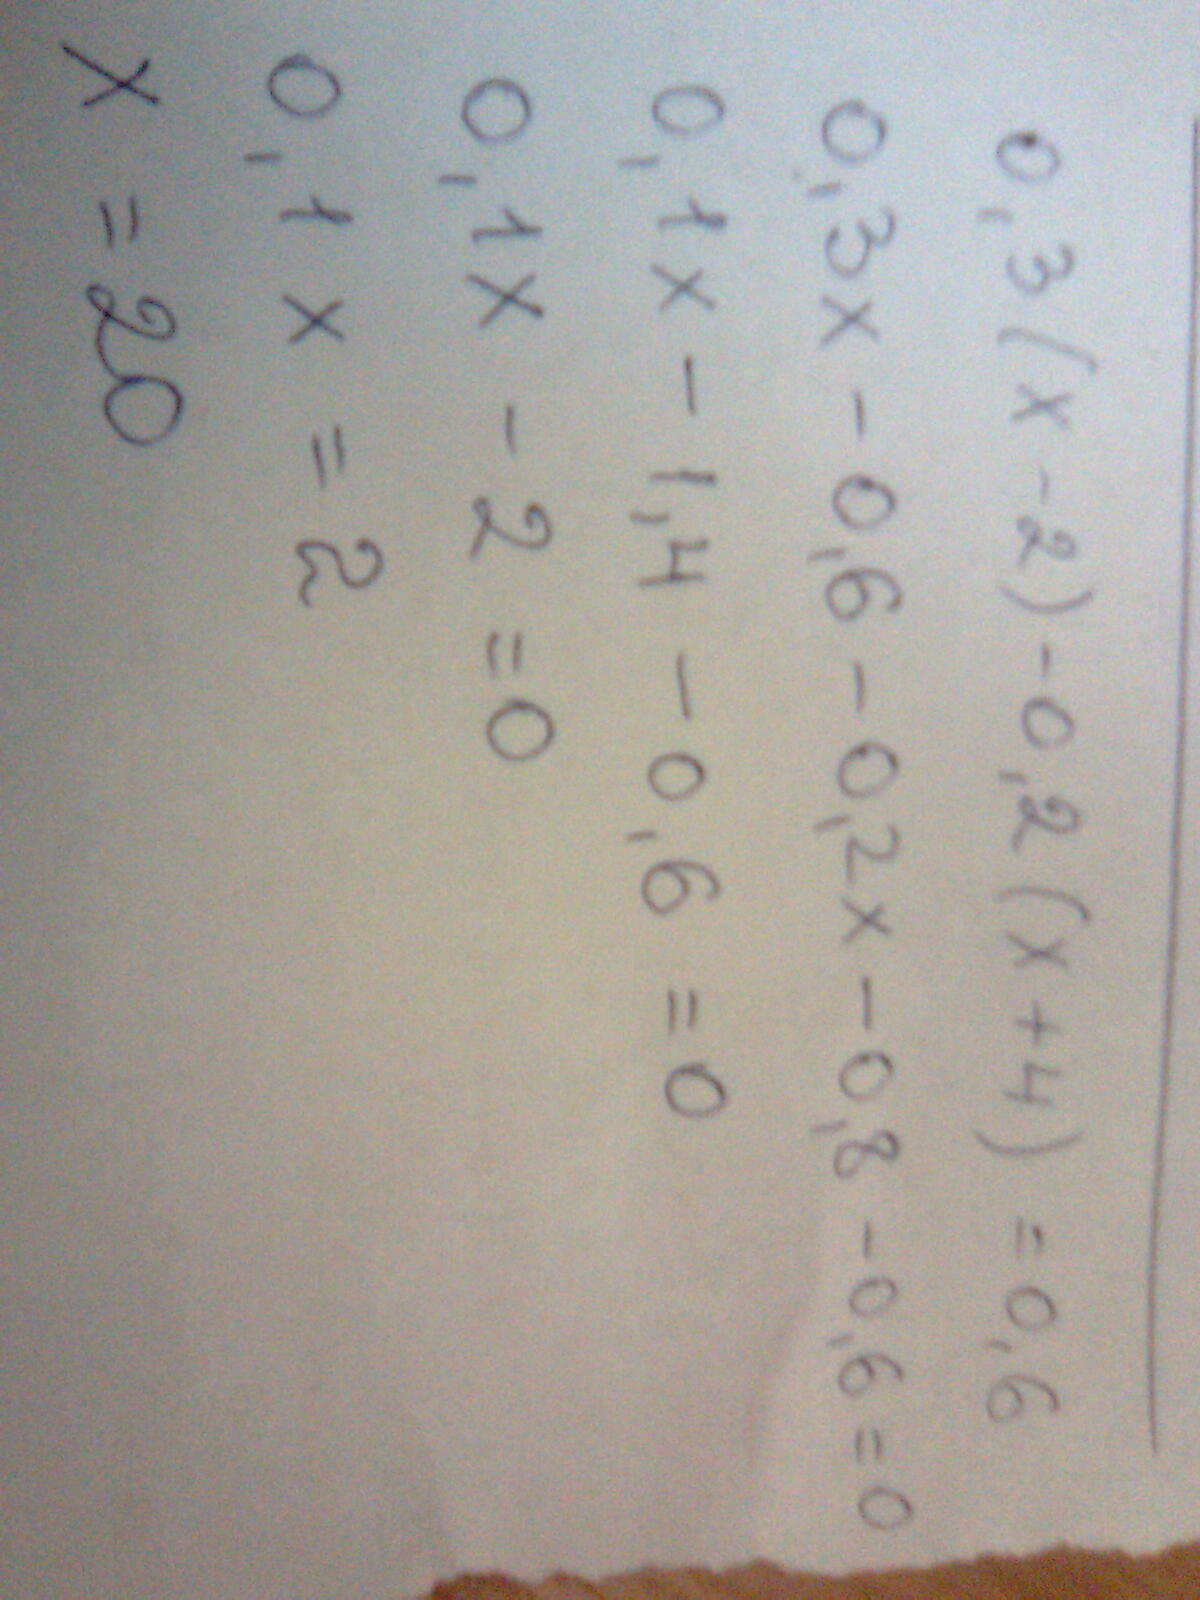 0,3(x-2)-0,2(x+4)=0,6
0,3x-0,6-0,2x-0,8-0,6=0
0,1x-1,4-0,6=0
0,1x-2=0
0,1x=2
x=20